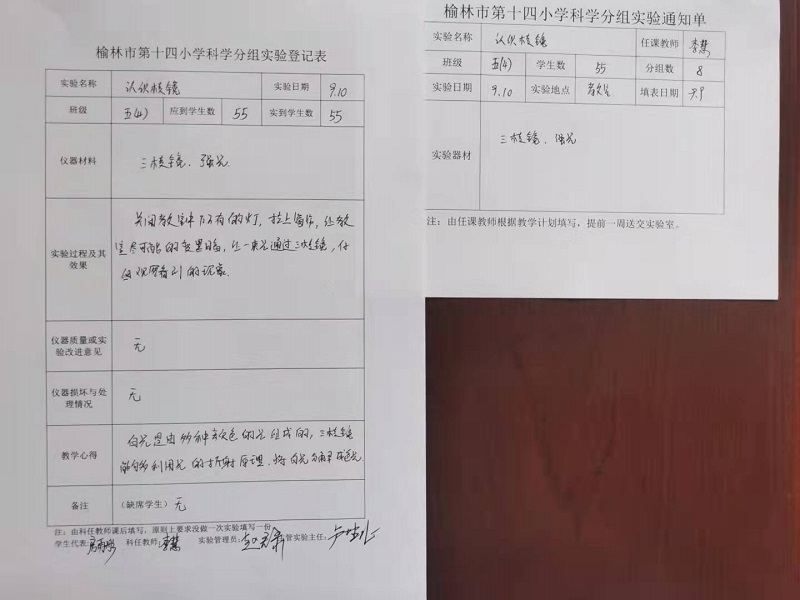 榆林市第十四小学科学分组实验登记表
实验名称 认识棱镜 实验日期 9.10
班级 五(4) 应到学生数 55 实到学生数 55
仪器材料 三棱镜、强光
实验过程及其效果 关闭教室中所有的灯,拉上窗帘,让教
室尽可能的变黑暗,让一束光通过三棱镜,仔
细观察看到的现象.
仪器质量或实验改进意见 无
仪器损坏与处理情况 无
教学心得 白光是由多种颜色的光组成的,三棱镜
能够利用光的折射原理,将白光分解成色光
备注 (缺席学生) 无
注:由科任教师课后填写,原则上要求没做一次实验填写一份
学生代表: 科任教师:李慧 实验管理员: 管实验主任:
榆林市第十四小学科学分组实验通知单
实验名称 认识棱镜 任课教师 李慧
班级 五(4) 学生数 55 分组数 8
实验日期 9.10 实验地点 教室 填表日期 9.9
实验器材 三棱镜、强光
注:由任课教师根据教学计划填写,提前一周送交实验室。